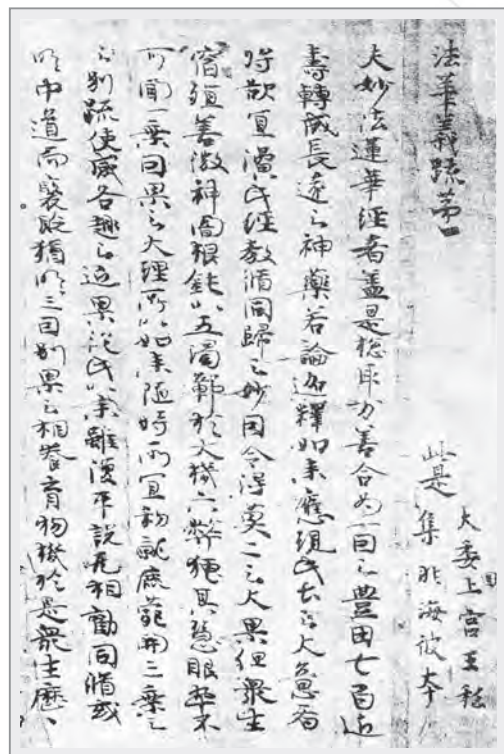 法華義疏第一
此是
大委国上宮王私
集非海彼本
夫妙法蓮華経者盖是惣取万善合為一因之豊田七百近
壽轉成長遠之神藥若論迦釋如来應現此土之大意者
将欲宜演此経教脩同歸之妙因令得莫二之大果但衆生
宿殖善微神闇根鈍以五濁鄣於大機六弊掩其慧眼卒不
可聞一乗因果之大理所以如来随時所宜初就鹿苑開三乗
之別疏使感各趣之近果従此以来雖復平説无相勧同脩或
明中道而褒貶猶明三因別果之相養育物機於是衆生歴